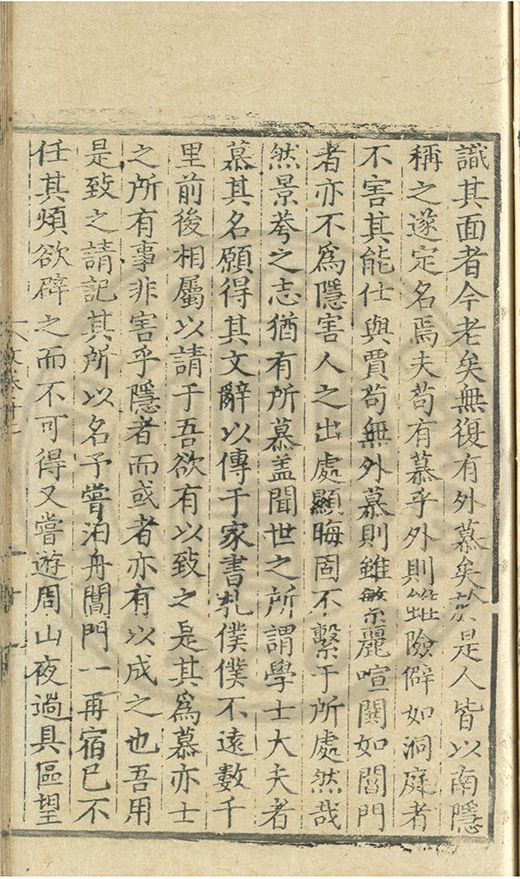 識其面者今老矣無復有外慕矣於是人皆以南隱
稱之遂定名焉夫苟有慕乎外則雖險僻如洞庭者
不害其能仕與賈苟無外慕則雖繁麗喧闐如閶門
者亦不爲隱害人之出處顯晦固不繫于所處然哉
然景荂之志猶有所慕盖聞世之所謂學士大夫者
慕其名願得其文辭以傳于家書札僕僕不遠數千
里前後相屬以請于吾欲有以致之是其爲慕亦士
之所有事非害乎隱者而或者亦有以成之也吾用
是致之請記其所以名予嘗泊舟閶門一再宿已不
任其煩欲碎之而不可得又嘗遊周山夜過具區望